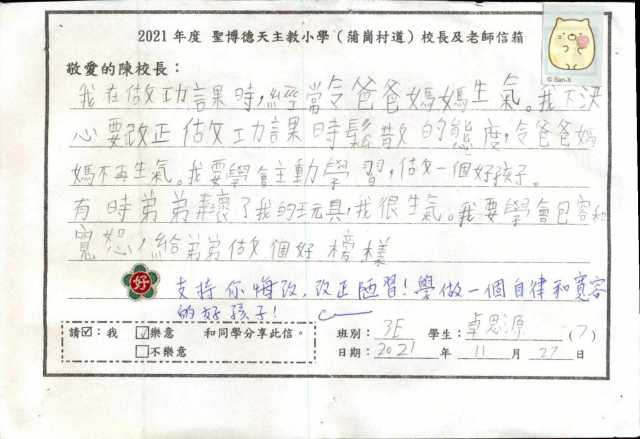 2021 年度 聖博德天主教小學（蒲崗村道）校長及老師信箱
© San-X
敬愛的陳校長：
我在做功課時，經常令爸爸媽媽生氣。我下決
心要改正做功課時鬆散的態度，令爸爸媽
媽不再生氣。我要學會主動學習，做一個好孩子。
有時弟弟弄壞了我的玩具，我很生氣。我要學會包容和
寬恕，給弟弟做個好榜樣
好
支持你悔改，改正陋習！學做一個自律和寬容
的好孩子！
請☑：我 ☑樂意 和同學分享此信。 班別：3E 學生：卓思源 (7)
□不樂意 日期：2021 年 11 月 27 日